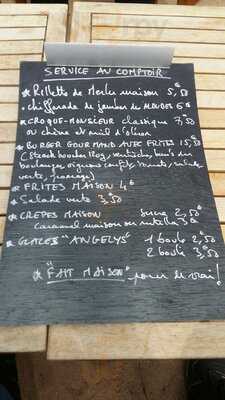 SERVICE AU COMPTOIR
* Rillette de Merlu maison 5,50
* chiffonade de jambon de 6€
* CROQUE-MONSIEUR classique 7,50
ou chèvre et miel d'oléron
* BURGER GOURMAND AVEC FRITES 15,50
(Steack boucher 180g, ventrèche, buns du
boulanger, oignons confits, tomate, salade
verte, fromage)
* FRITES MAISON 4€
* Salade verte 3,50
* CREPES MAISON sucre 2,50
Caramel maison ou nutella 3€
* GLACES "ANGELYS" 1 boule 2,50
2 boule 3,50
* "FAIT MAISON" pour de vrai!